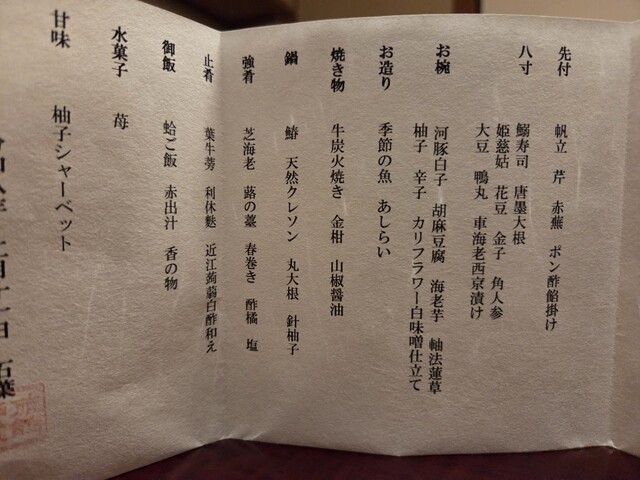 先付 帆立 芹 赤蕪 ポン酢餡掛け
八寸 鰯寿司 唐墨大根
姫慈姑 花豆 金子 角人参
大豆 鴨丸 車海老西京漬け
お椀 河豚白子 胡麻豆腐 海老芋 軸法蓮草
柚子 辛子 カリフラワー白味噌仕立て
お造り 季節の魚 あしらい
焼き物 牛炭火焼き 金柑 山椒醤油
鍋 鰆 天然クレソン 丸大根 針柚子
強肴 芝海老 蕗の薹 春巻き 酢橘 塩
止肴 葉牛蒡 利休麩 近江蒟蒻白酢和え
御飯 蛤ご飯 赤出汁 香の物
水菓子 苺
甘味 柚子シャーベット
石葉